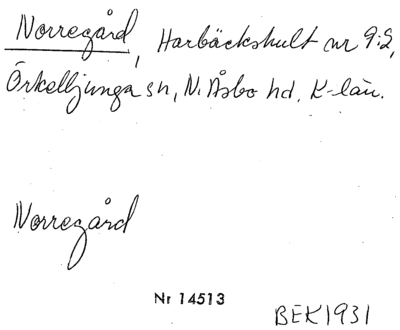 Norregård, Harbäckshult nr 9:2,
Örkelljunga sn, N. Åsbo hd. K-län.
Norregård
Nr 14513
BEK1931